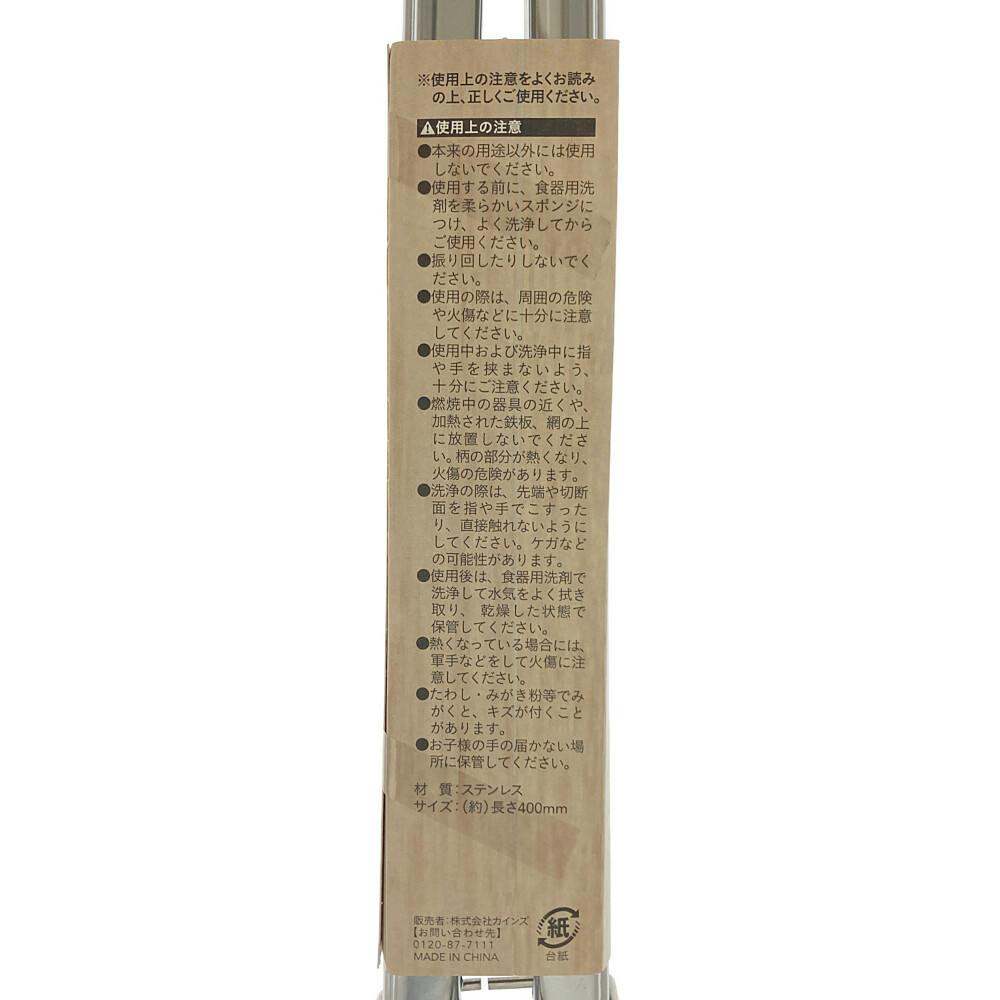 ※使用上の注意をよくお読み
の上、正しくご使用ください。
⚠使用上の注意
●本来の用途以外には使用
しないでください。
●使用する前に、食器用洗
剤を柔らかいスポンジに
つけ、よく洗浄してから
ご使用ください。
●振り回したりしないでく
ださい。
●使用の際は、周囲の危険
や火傷などに十分に注意
してください。
●使用中および洗浄中に指
や手を挟まないよう、
十分にご注意ください。
●燃焼中の器具の近くや、
加熱された鉄板、網の上
に放置しないでくださ
い。柄の部分が熱くなり、
火傷の危険があります。
●洗浄の際は、先端や切断
面を指や手でこすった
り、直接触れないように
してください。ケガなど
の可能性があります。
●使用後は、食器用洗剤で
洗浄して水気をよく拭き
取り、乾燥した状態で
保管してください。
●熱くなっている場合には、
軍手などをして火傷に注
意してください。
●たわし・みがき粉等でみ
がくと、キズが付くこと
があります。
●お子様の手の届かない場
所に保管してください。
材 質：ステンレス
サイズ：(約)長さ400mm
販売者：株式会社カインズ
【お問い合わせ先】
0120-87-7111
MADE IN CHINA
紙
台紙